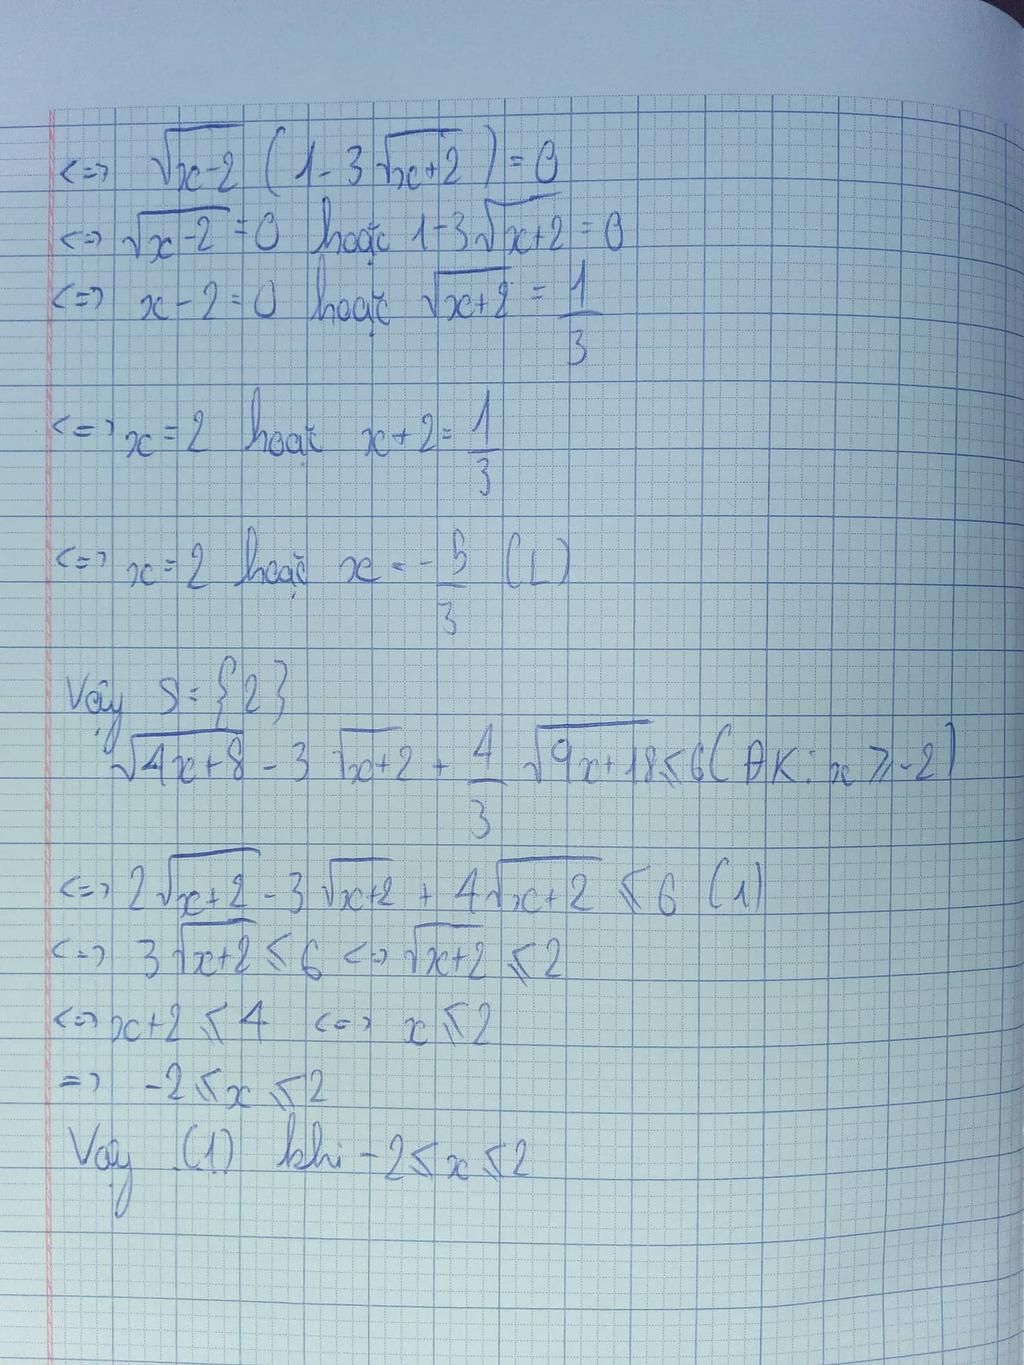 <=> √(x-2) (1-3√(x+2)) = 0
<=> √(x-2) = 0 hoặc 1-3√(x+2) = 0
<=> x-2 = 0 hoặc √(x+2) = 1/3
<=> x = 2 hoặc x+2 = 1/3
<=> x = 2 hoặc x = -5/3 (L)
Vậy S = {2}
√(4x+8) - 3√(x+2) + 4/3 √(9x+18) ≤ 6 (ĐK: x ≥ -2)
<=> 2√(x+2) - 3√(x+2) + 4√(x+2) ≤ 6 (1)
<=> 3√(x+2) ≤ 6 <=> √(x+2) ≤ 2
<=> x+2 ≤ 4 <=> x ≤ 2
=> -2 ≤ x ≤ 2
Vậy (1) khi -2 ≤ x ≤ 2